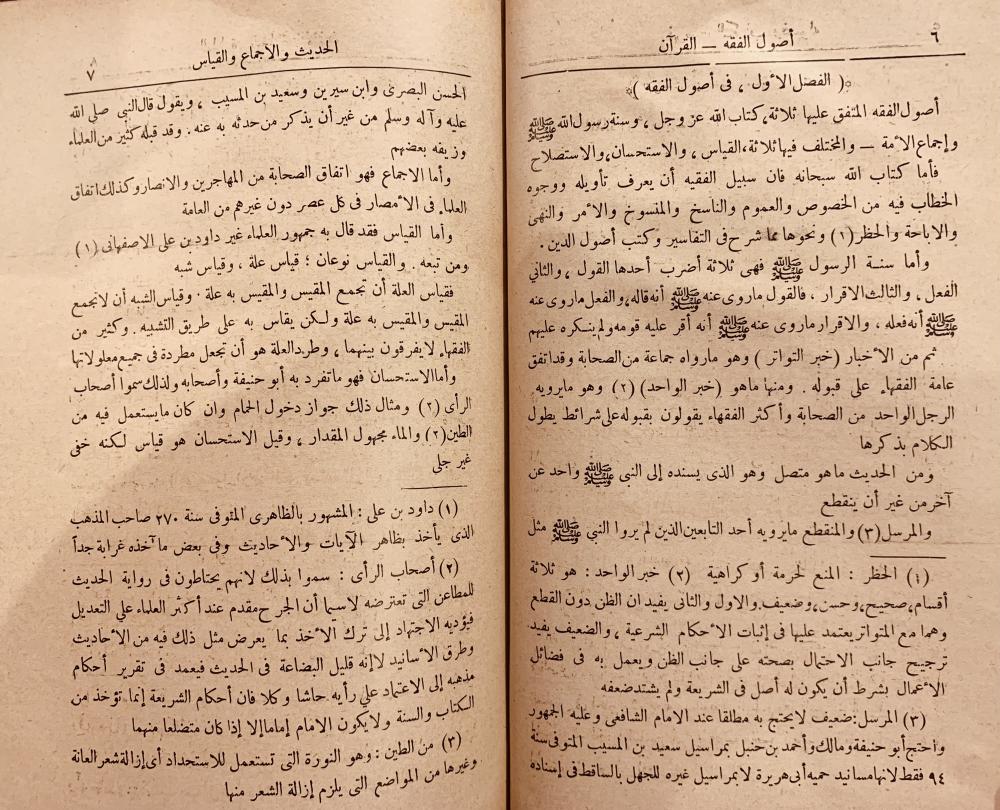 ٦
أصول الفقه — القرآن
( الفصل الاول ، فى أصول الفقه )
أصول الفقه المتفق عليها ثلاثة، كتاب الله عز وجل ، وسنة رسول الله ﷺ
وإجماع الأمة — والمختلف فيها ثلاثة، القياس ، والاستحسان، والاستصلاح
فأما كتاب الله سبحانه فان سبيل الفقيه أن يعرف تأويله ووجوه
الخطاب فيه من الخصوص والعموم والناسخ والمنسوخ والأمر والنهى
والاباحة والحظر(١) ونحوها مما شرح فى التفاسير وكتب أصول الدين .
وأما سنة الرسول ﷺ فهى ثلاثة أضرب أحدها القول ، والثانى
الفعل ، والثالث الاقرار ، فالقول ماروى عنه ﷺ أنه قاله، والفعل ماروى عنه
ﷺ أنه فعله ، والاقرار ماروى عنه ﷺ أنه أقر عليه قومه ولم ينكره عليهم
ثم من الأخبار (خبر التواتر ) وهو مارواه جماعة من الصحابة وقد اتفق
عامة الفقهاء على قبوله . ومنها ماهو (خبر الواحد) (٢) وهو مايرويه
الرجل الواحد من الصحابة وأكثر الفقهاء يقولون بقبوله على شرائط يطول
الكلام بذكرها
ومن الحديث ماهو متصل وهو الذى يسنده إلى النبى ﷺ واحد عن
آخر من غير أن ينقطع
والمرسل(٣) والمنقطع مايرويه أحد التابعين الذين لم يروا النبى ﷺ مثل
(١) الحظر : المنع لحرمة أو كراهية (٢) خبر الواحد : هو ثلاثة
أقسام، صحيح، وحسن، وضعيف. والاول والثانى يفيد ان الظن دون القطع
وهما مع المتواتر يعتمد عليها فى إثبات الأحكام الشرعية ، والضعيف يفيد
ترجيح جانب الاحتمال بصحته على جانب الظن ويعمل به فى فضائل
الأعمال بشرط أن يكون له أصل فى الشريعة ولم يشتد ضعفه
(٣) المرسل: ضعيف لايحتج به مطلقا عند الامام الشافعى وعليه الجمهور
واحتج أبو حنيفة ومالك وأحمد بن حنبل بمراسيل سعيد بن المسيب المتوفى سنة
٩٤ فقط لانها مسانيد حميه أبى هريرة لابمراسيل غيره للجهل بالساقط فى إسناده
الحديث والاجماع والقياس
٧
الحسن البصرى وابن سيرين وسعيد بن المسيب ، ويقول قال النبى صلى الله
عليه وآله وسلم من غير أن يذكر من حدثه به عنه . وقد قبله كثير من العلماء
وزيفه بعضهم
وأما الاجماع فهو اتفاق الصحابة من المهاجرين والانصار وكذلك اتفاق
العلماء فى الأمصار فى كل عصر دون غيرهم من العامة
وأما القياس فقد قال به جمهور العلماء غير داود بن على الاصفهانى (١)
ومن تبعه . والقياس نوعان ؛ قياس علة ، وقياس شبه
فقياس العلة أن يجمع المقيس والمقيس به علة . وقياس الشبه أن لايجمع
المقيس والمقيس به علة ولكن يقاس به على طريق التشبيه . وكثير من
الفقهاء لايفرقون بينهما ، وطرد العلة هو أن تجعل مطردة فى جميع معلولاتها
وأما الاستحسان فهو ماتفرد به أبو حنيفة وأصحابه ولذلك سموا أصحاب
الرأى (٢) ومثال ذلك جواز دخول الحمام وان كان مايستعمل فيه من
الطين(٢) والماء مجهول المقدار ، وقيل الاستحسان هو قياس لكنه خفى
غير جلى
(١) داود بن على : المشهور بالظاهرى المتوفى سنة ٢٧٠ صاحب المذهب
الذى يأخذ بظاهر الآيات والأحاديث وفى بعض ما آخذه غرابة جداً
(٢) أصحاب الرأى : سموا بذلك لانهم يحتاطون فى رواية الحديث
للمطاعن التى تعترضه لاسيما أن الجرح مقدم عند أكثر العلماء على التعديل
فيؤديه الاجتهاد إلى ترك الأخذ بما يعرض مثل ذلك فيه من الأحاديث
وطرق الأسانيد لاإنه قليل البضاعة فى الحديث فيعمد فى تقرير أحكام
مذهبه إلى الاعتماد على رأيه حاشا وكلا فان أحكام الشريعة إنما تؤخذ من
الكتاب والسنة ولايكون الامام إماما إلا إذا كان متضلعا منهما
(٣) من الطين : وهو النورة التى تستعمل للاستحداد أى إزالة شعر العانة
وغيرها من المواضع التى يلزم إزالة الشعر منها